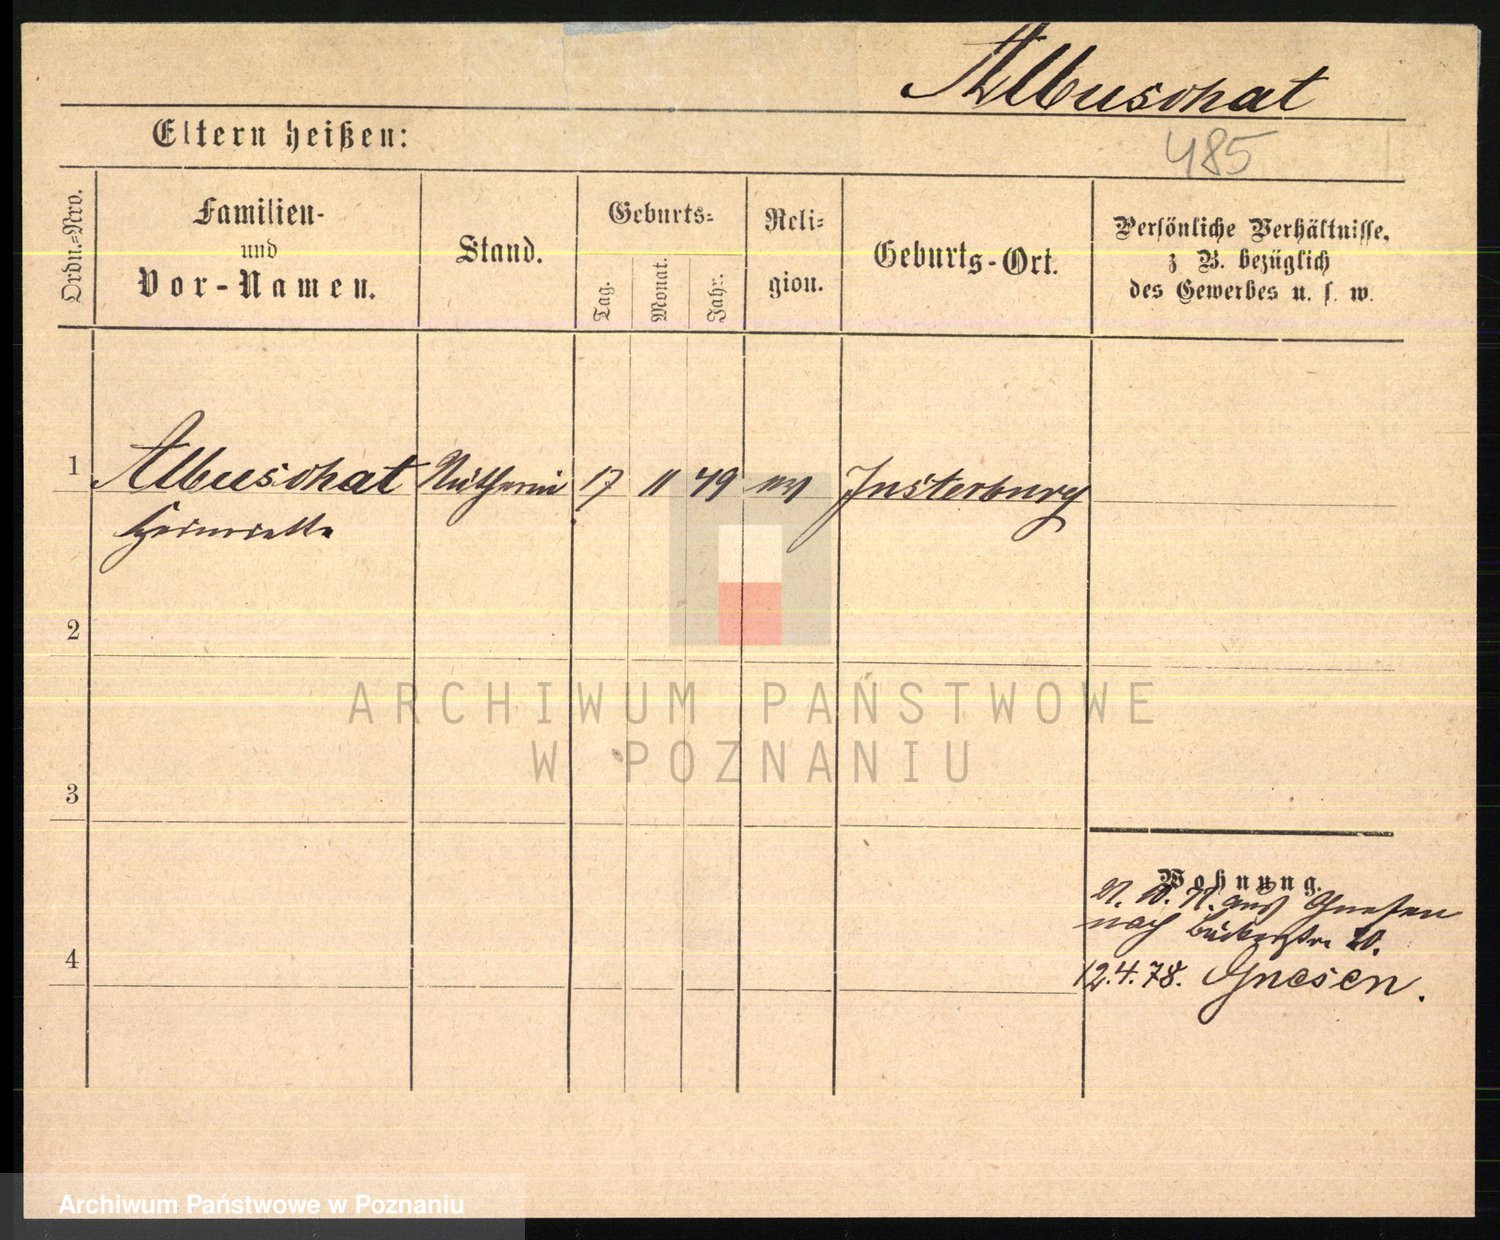 Albuschat
485
Eltern heißen:
Ordn.=Nro.
Familien-
und
Vor-Namen.
Stand.
Geburts=
Tag.
Monat.
Jahr.
Reli=
gion.
Geburts-Ort.
Persönliche Verhältnisse,
z B. bezüglich
des Gewerbes u. s. w.
1 Albuschat 17 11 49 ev Insterburg
Henriette
2
3
4
Wohnung.
aus Gnesen
nach
12.4.78. Gnesen.
ARCHIWUM PAŃSTWOWE
W POZNANIU
Archiwum Państwowe w Poznaniu